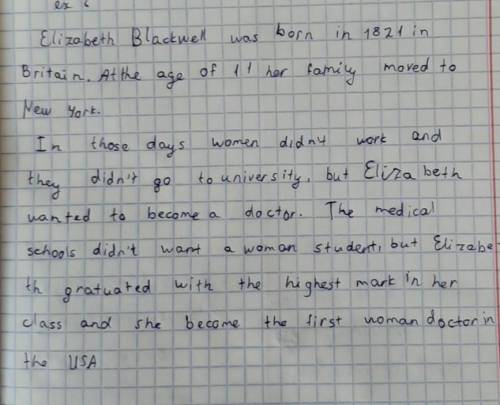 ex 6
Elizabeth Blackwell was born in 1821 in
Britain. At the age of 11 her family moved to
New York.
In those days women didn't work and
they didn't go to university, but Eliza beth
wanted to become a doctor. The medical
schools didn't want a woman student, but Elizabe-
th gratuated with the highest mark in her
class and she become the first woman doctor in
the USA